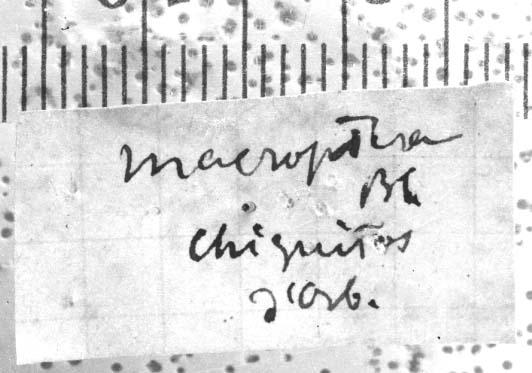 macroptera
Bl.
chiquitos
d'Orb.